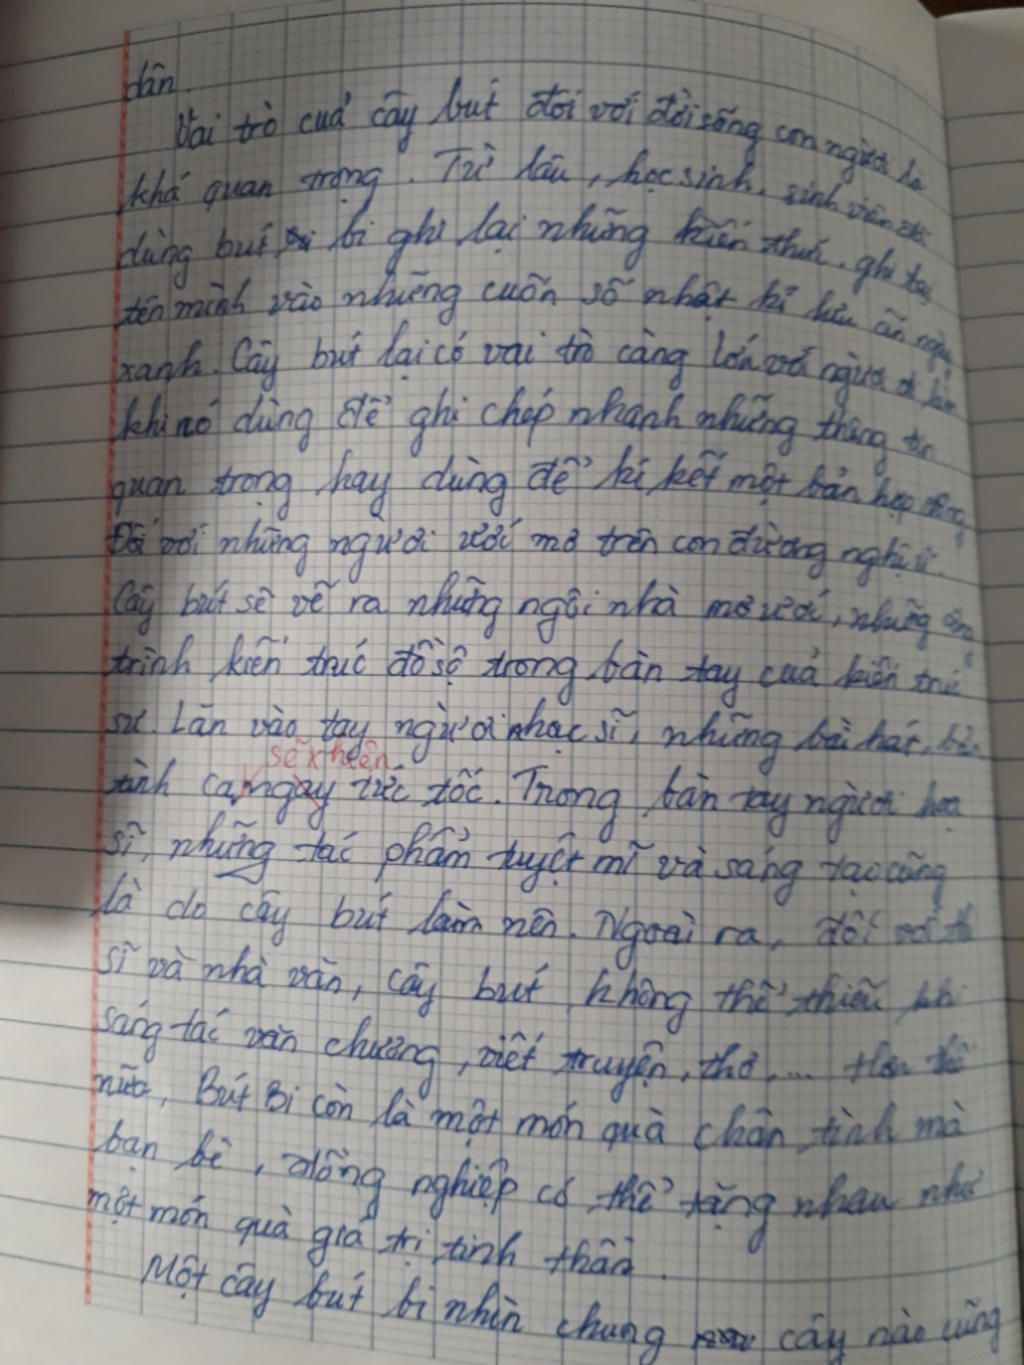 dân.
Vai trò cuả cây bút đối với đời sống con người là
khá quan trọng. Từ lâu, học sinh, sinh viên đã
dùng bút bi ghi lại những kiến thức, ghi tay
tên mình vào những cuốn sổ nhật kí lưu ấn ngày
xanh. Cây bút lại có vai trò càng lớn với người đi làm
khi nó dùng để ghi chép nhanh những thông tin
quan trọng hay dùng để kí kết một bản hợp đồng
Đối với những người ước mơ trên con đường nghệ sĩ.
Cây bút sẽ vẽ ra những ngôi nhà mơ ước, những công
trình kiến trúc đồ sộ trong bàn tay cuả kiến trúc
sư. Lăn vào tay người nhạc sĩ, những bài hát, bản
sẽ x hiện
tình ca ngay tức tốc. Trong bàn tay người hoạ
sĩ, những tác phẩm tuyệt mĩ và sáng tạo cũng
là do cây bút làm nên. Ngoài ra, đối với thi
sĩ và nhà văn, cây bút không thể thiếu khi
sáng tác văn chương, viết truyện, thơ, ... Hơn thế
nữa, Bút Bi còn là một món quà chân tình mà
bạn bè, đồng nghiệp có thể tặng nhau như
một món quà giá trị tinh thần.
Một cây bút bi nhìn chung cây nào cũng